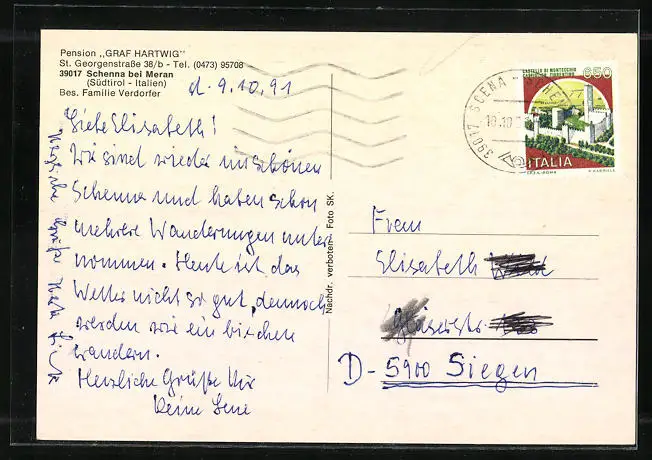 Pension „GRAF HARTWIG"
St. Georgenstraße 38/b - Tel. (0473) 95708
39017 Schenna bei Meran
(Südtirol - Italien)
Bes. Familie Verdorfer
d. 9.10.91
Liebe Elisabeth!
Wir sind wieder im schönen
Schenna und haben schon
mehrere Wanderungen unter
nommen. Heute ist das
Wetter nicht so gut, dennoch
werden wir ein bischen
wandern.
Herzliche Grüße Dir
Deine Lene
Herzliche Grüße
Nachdr. verboten - Foto SK.
39017 SCENA - SCHENNA
10.10
CASTELLO DI MONTECCHIO
CASTIGLION FIORENTINO
650
ITALIA
Frau
Elisabeth
D-5900 Siegen